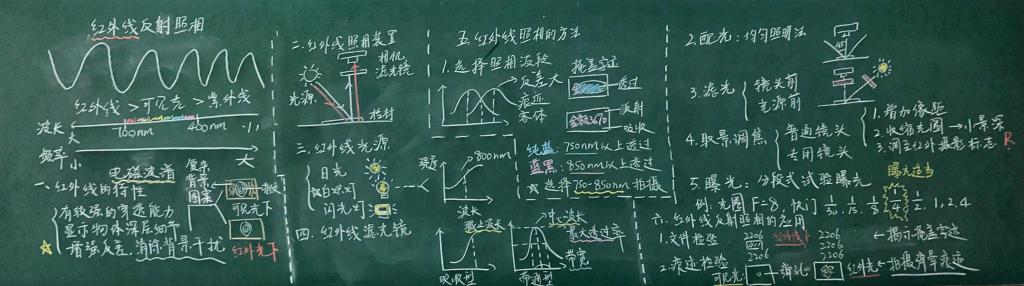 红外线反射照相
红外线 > 可见光 > 紫外线
波长
大
760nm
400nm
小
频率
小
大
电磁波谱
一、红外线的特性
有较强的穿透能力
显示物体深层细节
增强反差,消除背景干扰
背景
图案
可见光下
红外光下
二、红外线照相装置
相机
滤光镜
光源
检材
三、红外线光源
日光
闪光灯
强度
800nm
波长
四、红外线滤光镜
吸收型
带通型
中心波长
最大透过率
带宽
五、红外线照相的方法
1.选择照相波段
反差大
痕迹
客体
掩盖字迹
透过
金额3670
反射
吸收
纯蓝:750nm以上透过
蓝黑:850nm以上透过
选择750-850nm拍摄
2.配光:均匀照明法
3.滤光
镜头前
光源前
4.取景调焦
普通镜头
专用镜头
1.增加像距
2.收缩光圈→小景深
3.调至红外摄影标志 R
曝光适当
5.曝光:分段式试验曝光
例:光圈F=8,快门 1/30. 1/15. 1/8 1/4 1/2. 1, 2, 4
六、红外线反射照相的应用
1.文件检验
2206
2206
红外线下
2206
2206
←揭示掩盖字迹
2.痕迹检验
可见光
弹孔
红外光
←拍摄射击痕迹